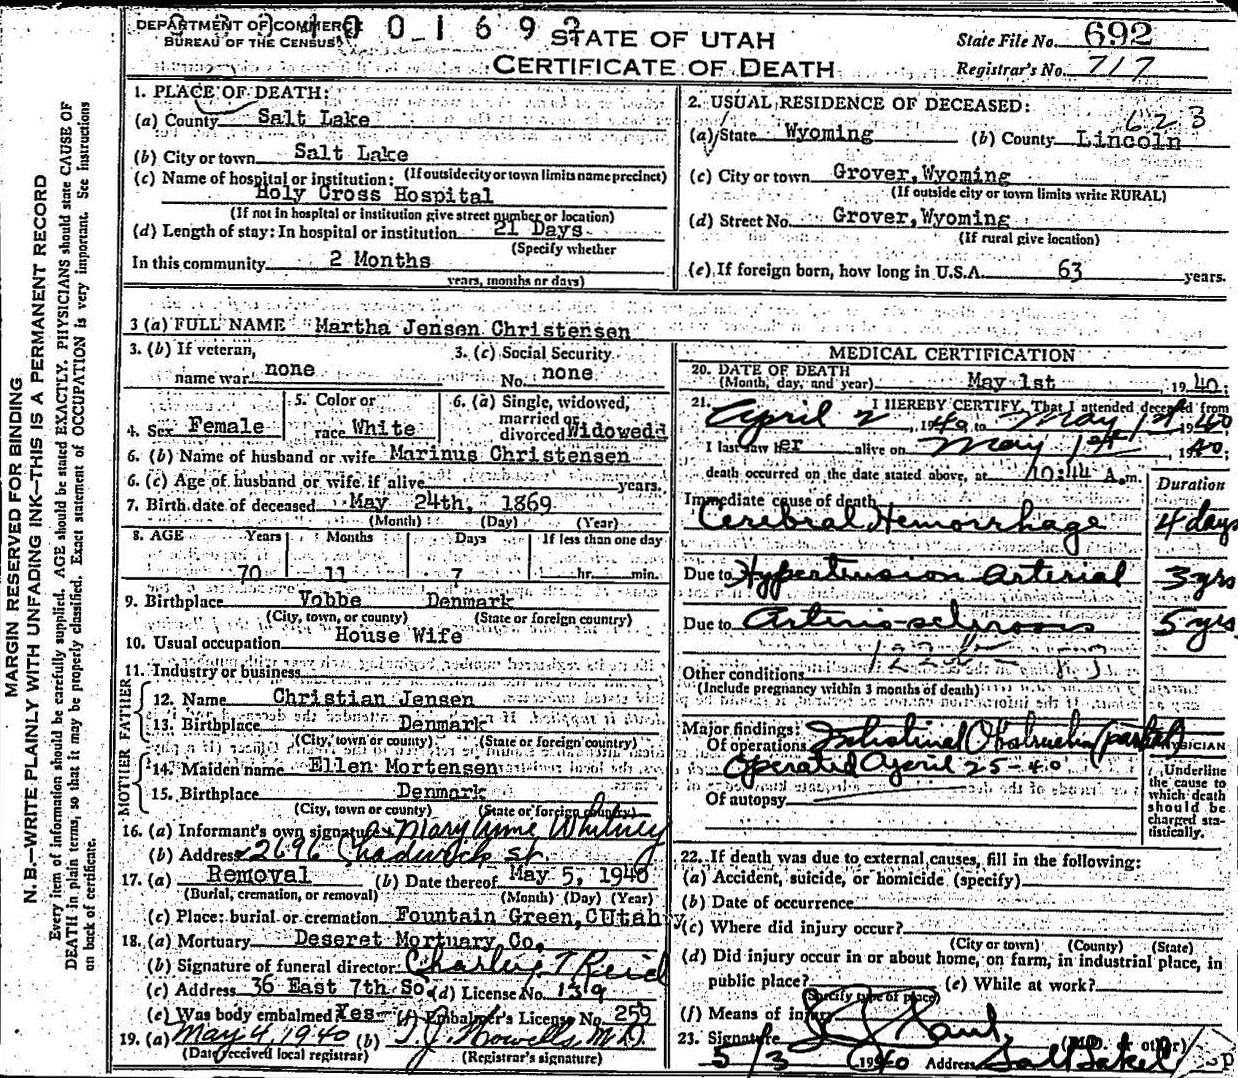 DEPARTMENT OF COMMERCE
BUREAU OF THE CENSUS
STATE OF UTAH
CERTIFICATE OF DEATH
State File No. 692
Registrar's No. 717
MARGIN RESERVED FOR BINDING
N. B.—WRITE PLAINLY WITH UNFADING INK—THIS IS A PERMANENT RECORD
Every item of information should be carefully supplied. AGE should be stated EXACTLY. PHYSICIANS should state CAUSE OF
DEATH in plain terms, so that it may be properly classified. Exact statement of OCCUPATION is very important. See instructions
on back of certificate.
1. PLACE OF DEATH:
(a) County Salt Lake
(b) City or town Salt Lake
(If outside city or town limits name precinct)
(c) Name of hospital or institution:
Holy Cross Hospital
(If not in hospital or institution give street number or location)
(d) Length of stay: In hospital or institution 21 Days
(Specify whether
In this community 2 Months
years, months or days)
2. USUAL RESIDENCE OF DECEASED:
623
(a) State Wyoming (b) County Lincoln
(c) City or town Grover, Wyoming
(If outside city or town limits write RURAL)
(d) Street No. Grover, Wyoming
(If rural give location)
(e) If foreign born, how long in U.S.A. 63 years.
3 (a) FULL NAME Martha Jensen Christensen
3. (b) If veteran, name war none
3. (c) Social Security No. none
4. Sex Female
5. Color or race White
6. (a) Single, widowed, married or divorced Widowedd
6. (b) Name of husband or wife Marinus Christensen
6. (c) Age of husband or wife if alive years.
7. Birth date of deceased May 24th, 1869
(Month) (Day) (Year)
8. AGE Years Months Days If less than one day
70 11 7 hr. min.
9. Birthplace Vobbe Denmark
(City, town, or county) (State or foreign country)
10. Usual occupation House Wife
11. Industry or business
FATHER
12. Name Christian Jensen
13. Birthplace Denmark
(City, town or county) (State or foreign country)
MOTHER
14. Maiden name Ellen Mortensen
15. Birthplace Denmark
(City, town or county) (State or foreign country)
16. (a) Informant's own signature Mary Anne Whitney
(b) Address 2696 Chadwick St.
17. (a) Removal (b) Date thereof May 5, 1940
(Burial, cremation, or removal) (Month) (Day) (Year)
(c) Place: burial or cremation Fountain Green, CUtahy
18. (a) Mortuary Deseret Mortuary Co.
(b) Signature of funeral director Charlie T Reid
(c) Address 36 East 7th So. (d) License No. 139
(e) Was body embalmed Yes (f) Embalmer's License No. 259
19. (a) May 4, 1940 (b) T. J. Howells M.D.
(Date received local registrar) (Registrar's signature)
MEDICAL CERTIFICATION
20. DATE OF DEATH
(Month, day, and year) May 1st, 1940;
21. I HEREBY CERTIFY, That I attended deceased from
April 2, 1940 to May 1st 1940
I last saw her alive on May 1st, 1940;
death occurred on the date stated above, at 10:44 A.m.
Duration
Immediate cause of death
Cerebral Hemorrhage 4 days
Due to Hypertension Arterial 3 yrs
Due to Arterio-sclerosis 5 yrs
Other conditions
(Include pregnancy within 3 months of death)
Major findings:
Of operations Intestinal Obstruction (partial)
Operated April 25-40
Of autopsy
PHYSICIAN
Underline the cause to which death should be charged statistically.
22. If death was due to external causes, fill in the following:
(a) Accident, suicide, or homicide (specify)
(b) Date of occurrence
(c) Where did injury occur?
(City or town) (County) (State)
(d) Did injury occur in or about home, on farm, in industrial place, in
public place? (e) While at work?
(Specify type of place)
(f) Means of injury
23. Signature (M.D. or other)
5/3 1940 Address Salt Lake